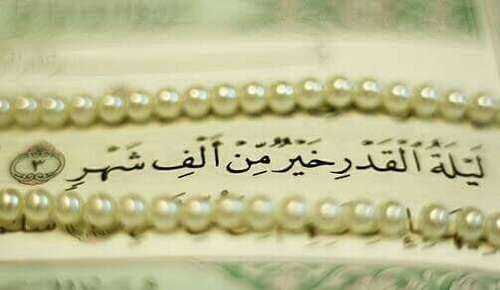 لَيۡلَةُ ٱلۡقَدۡرِ خَيۡرٞ مِّنۡ أَلۡفِ شَهۡرٖ ٣